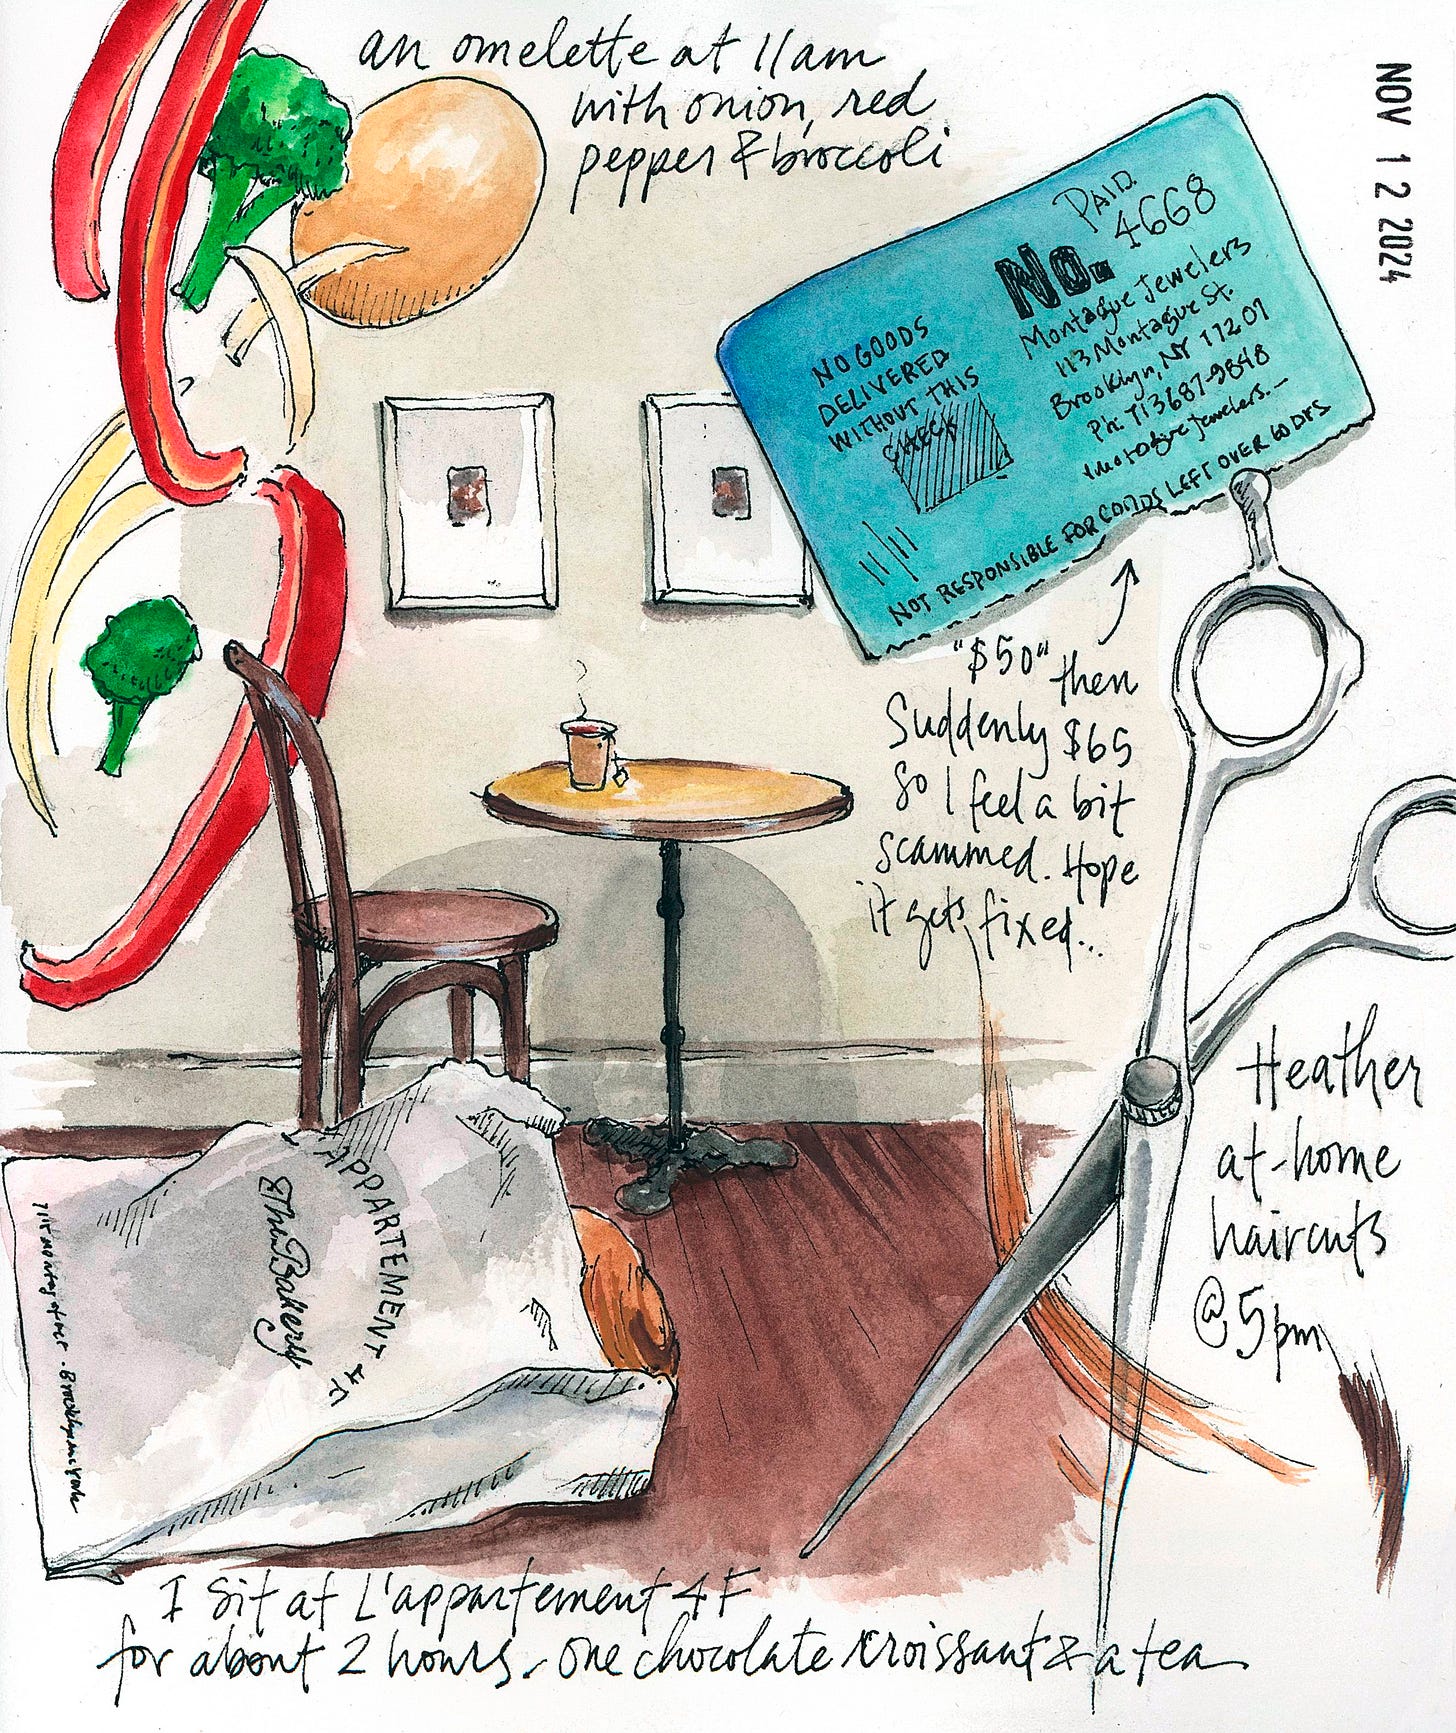 an omelette at 11am
with onion, red
pepper & broccoli
NOV 12 2024
PAID
4668
No.
Montague Jewelers
113 Montague St.
Brooklyn, NY 11201
Ph: 713 687-9848
Jewelers.—
NO GOODS
DELIVERED
WITHOUT THIS
CHECK
NOT RESPONSIBLE FOR GOODS LEFT OVER 60 DYS
"$50" then
Suddenly $65
So I feel a bit
scammed. Hope
it gets fixed..
Heather
at-home
haircuts
@5pm
APPARTEMENT 4F
The Bakery
I sit at L'appartement 4F
for about 2 hours - one chocolate croissant & a tea